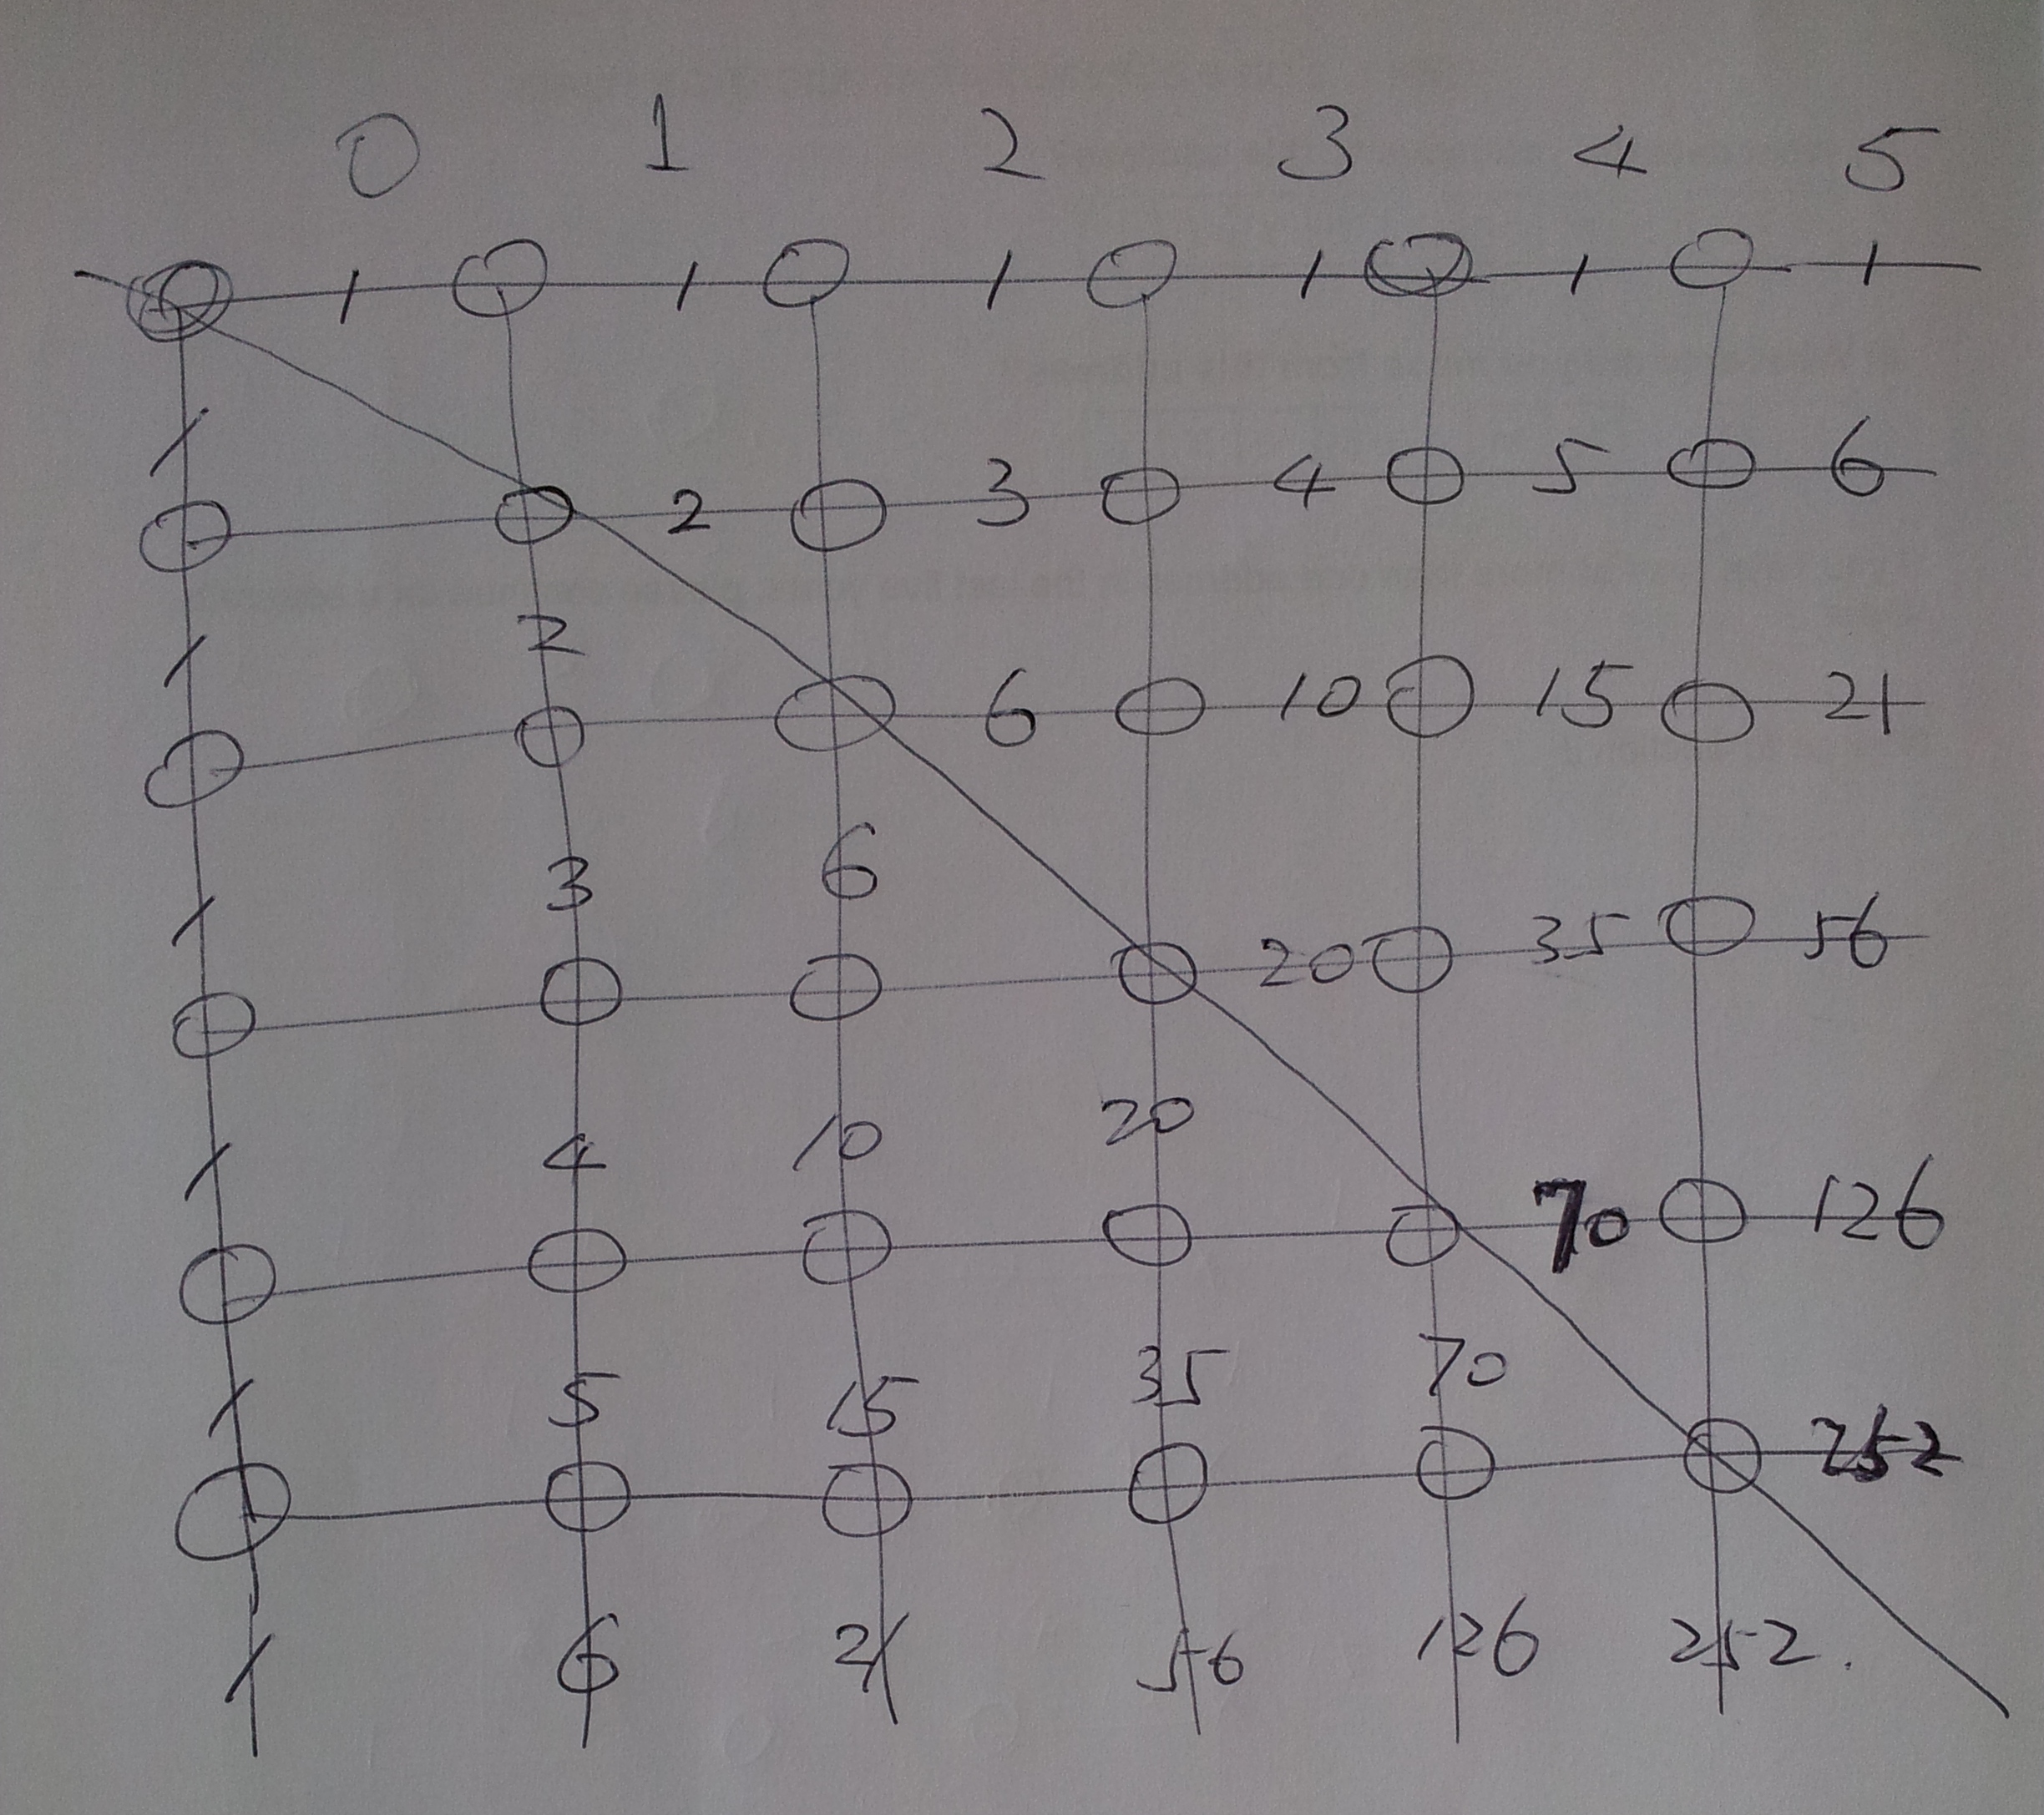 0 1 2 3 4 5
1 1 1 1 1 1
1
2 3 4 5 6
1 2
6 10 15 21
1 3 6
20 35 56
1 4 10 20
70 126
1 5 15 35 70
252
1 6 21 56 126 252.